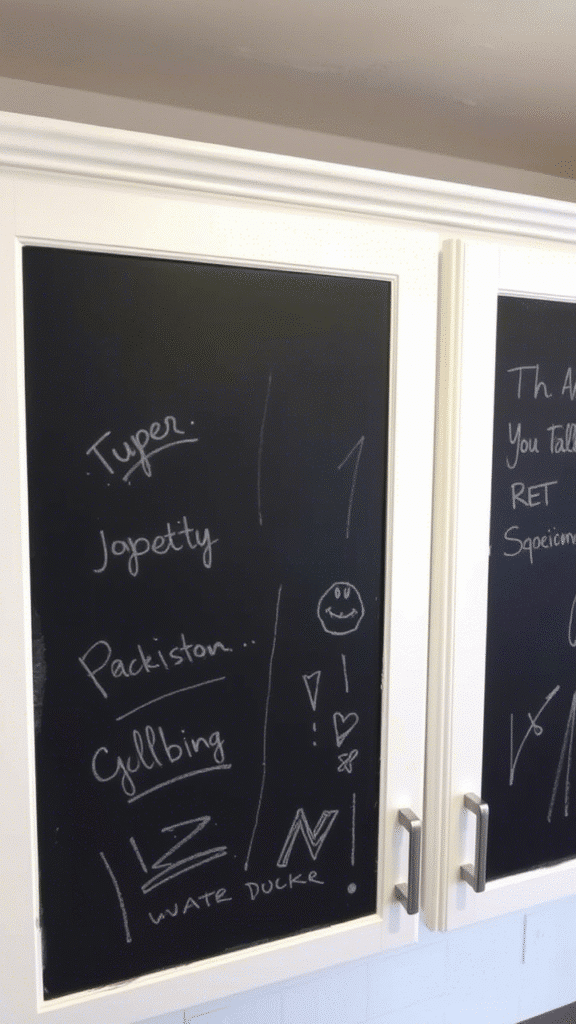 Tuper.
Japetty
Packiston...
Gollbing
WUATE DUCKR
Th
You Tall
RET